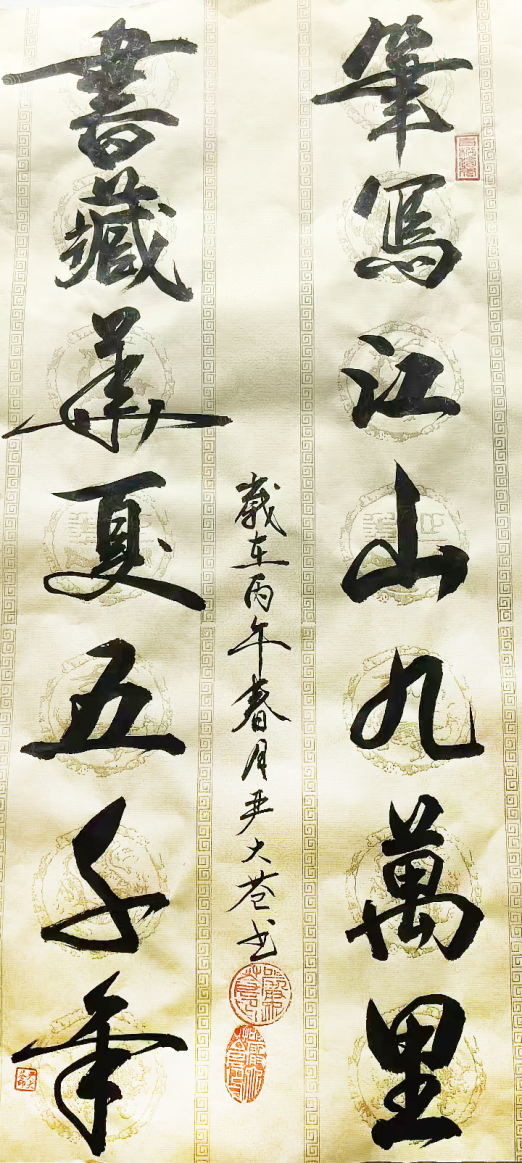 筆寫江山九萬里
書藏華夏五千年
歲在丙午春月尹大蒼书